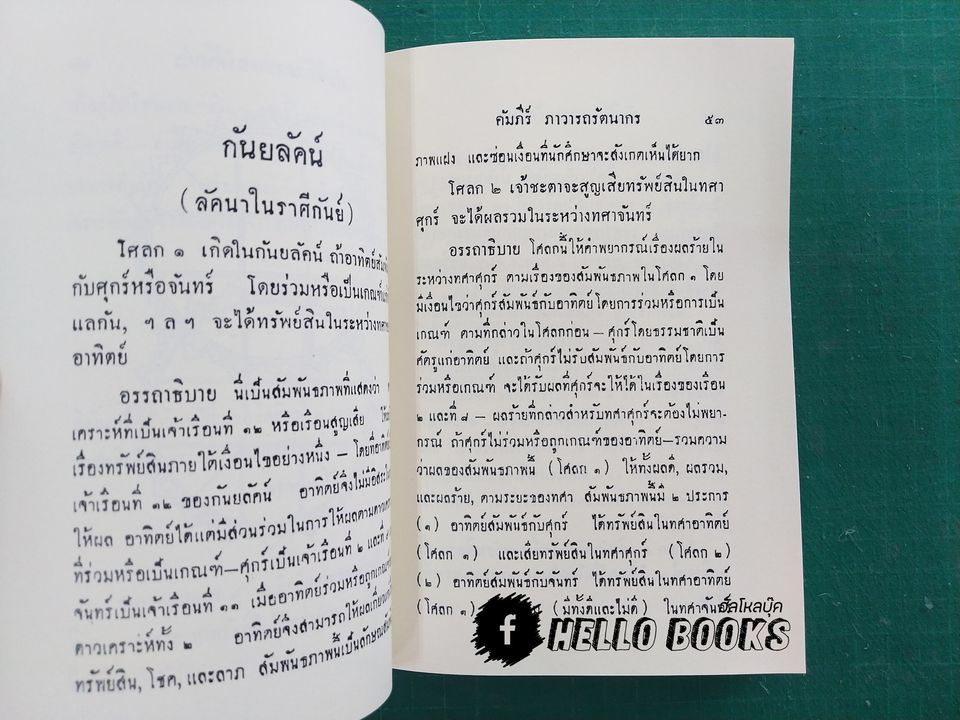 กันยลัคน์
(ลัคนาในราศีกันย์)
โศลก ๑ เกิดในกันยลัคน์ ถ้าอาทิตย์สัม
กับศุกร์หรือจันทร์ โดยร่วมหรือเป็นเกณฑ์
แลกัน, ฯ ล ฯ จะได้ทรัพย์สินในระหว่างทศา
อาทิตย์
อรรถาธิบาย นี่เป็นสัมพันธภาพที่แสดงว่า
เคราะห์ที่เป็นเจ้าเรือนที่ ๑๒ หรือเรือนสูญเสีย
เรื่องทรัพย์สินภายใต้เงื่อนไขอย่างหนึ่ง – โดยที่อาทิตย์
เจ้าเรือนที่ ๑๒ ของกันยลัคน์ อาทิตย์จึงไม่มีอิสระ
ให้ผล อาทิตย์ได้แต่มีส่วนร่วมในการให้ผลตามดาวเคราะห์
ที่ร่วมหรือเป็นเกณฑ์–ศุกร์เป็นเจ้าเรือนที่ ๒ และที่
จันทร์เป็นเจ้าเรือนที่ ๑๑ เมื่ออาทิตย์ร่วมหรือถูกเกณฑ์
ดาวเคราะห์ทั้ง ๒ อาทิตย์จึงสามารถให้ผลเกี่ยวแก่
ทรัพย์สิน, โชค, และลาภ สัมพันธภาพนี้เป็นลักษณะ
คัมภีร์ ภาวารถรัตนากร ๕๓
ภาพแฝง และซ่อนเงื่อนที่นักศึกษาจะสังเกตเห็นได้ยาก
โศลก ๒ เจ้าชะตาจะสูญเสียทรัพย์สินในทศา
ศุกร์ จะได้ผลรวมในระหว่างทศาจันทร์
อรรถาธิบาย โศลกนี้ให้คำพยากรณ์เรื่องผลร้ายใน
ระหว่างทศาศุกร์ ตามเรื่องของสัมพันธภาพในโศลก ๑ โดย
มีเงื่อนไขว่าศุกร์สัมพันธ์กับอาทิตย์โดยการร่วมหรือการเป็น
เกณฑ์ ตามที่กล่าวในโศลกก่อน – ศุกร์โดยธรรมชาติเป็น
ศัตรูแก่อาทิตย์ และถ้าศุกร์ไม่รับสัมพันธ์กับอาทิตย์โดยการ
ร่วมหรือเกณฑ์ จะได้รับผลที่ศุกร์จะให้ได้ในเรื่องของเรือน
๒ และที่ ๙ – ผลร้ายที่กล่าวสำหรับทศาศุกร์จะต้องไม่พยา-
กรณ์ ถ้าศุกร์ไม่ร่วมหรือถูกเกณฑ์ของอาทิตย์–รวมความ
ว่าผลของสัมพันธภาพนี้ (โศลก ๑) ให้ทั้งผลดี, ผลรวม,
และผลร้าย, ตามระยะของทศา สัมพันธภาพนี้มี ๒ ประการ
(๑) อาทิตย์สัมพันธ์กับศุกร์ ได้ทรัพย์สินในทศาอาทิตย์
(โศลก ๑) และเสียทรัพย์สินในทศาศุกร์ (โศลก ๒)
(๒) อาทิตย์สัมพันธ์กับจันทร์ ได้ทรัพย์สินในทศาอาทิตย์
(โศลก ๑) (มีทั้งดีและไม่ดี) ในทศาจันทร์
ฮัลโหลบุ๊ค
f HELLO BOOKS